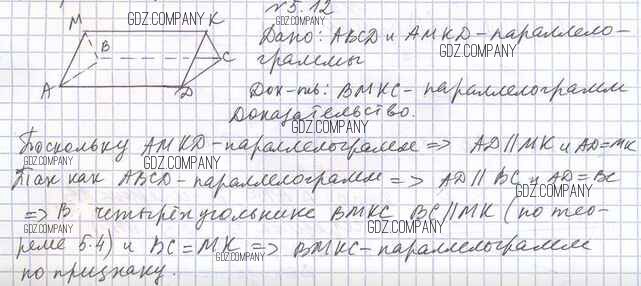 №5.12
GDZ.COMPANY
M K
B C
A D
Дано: ABCD и AMKD-параллело-
граммы
GDZ.COMPANY
GDZ.COMPANY
Док-ть: BMKC-параллелограмм
GDZ.COMPANY
Доказательство.
GDZ.COMPANY
Поскольку AMKD-параллелограмм => AD||MK и AD=MK
GDZ.COMPANY GDZ.COMPANY
Так как ABCD-параллелограмм => AD||BC и AD=BC
GDZ.COMPANY
=> В четырёхугольнике BMKC BC||MK (по тео-
GDZ.COMPANY GDZ.COMPANY
реме 5.4) и BC=MK => BMKC-параллелограмм
GDZ.COMPANY
по признаку.
GDZ.COMPANY